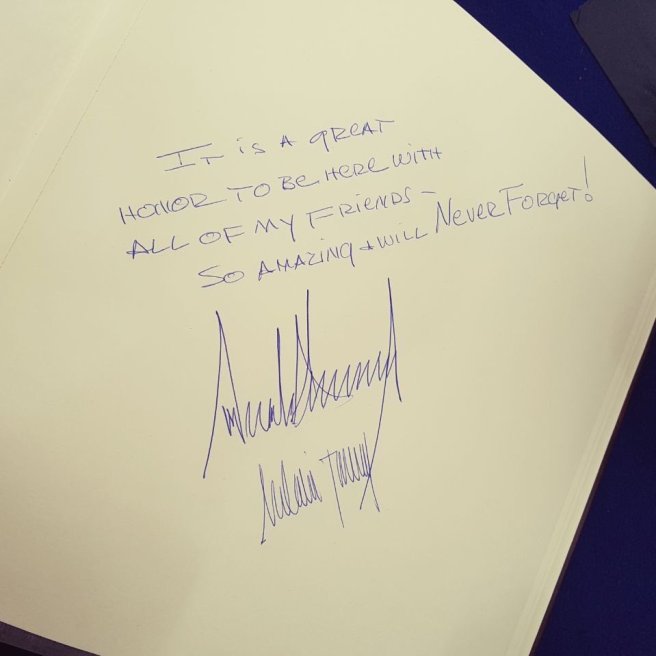 IT iS A GREAT
HONOR TO BE HERE WITH
ALL OF MY FRIENDS -
SO AMAZING + WILL NEVER FORGET!
Donald Trump
Melania Trump